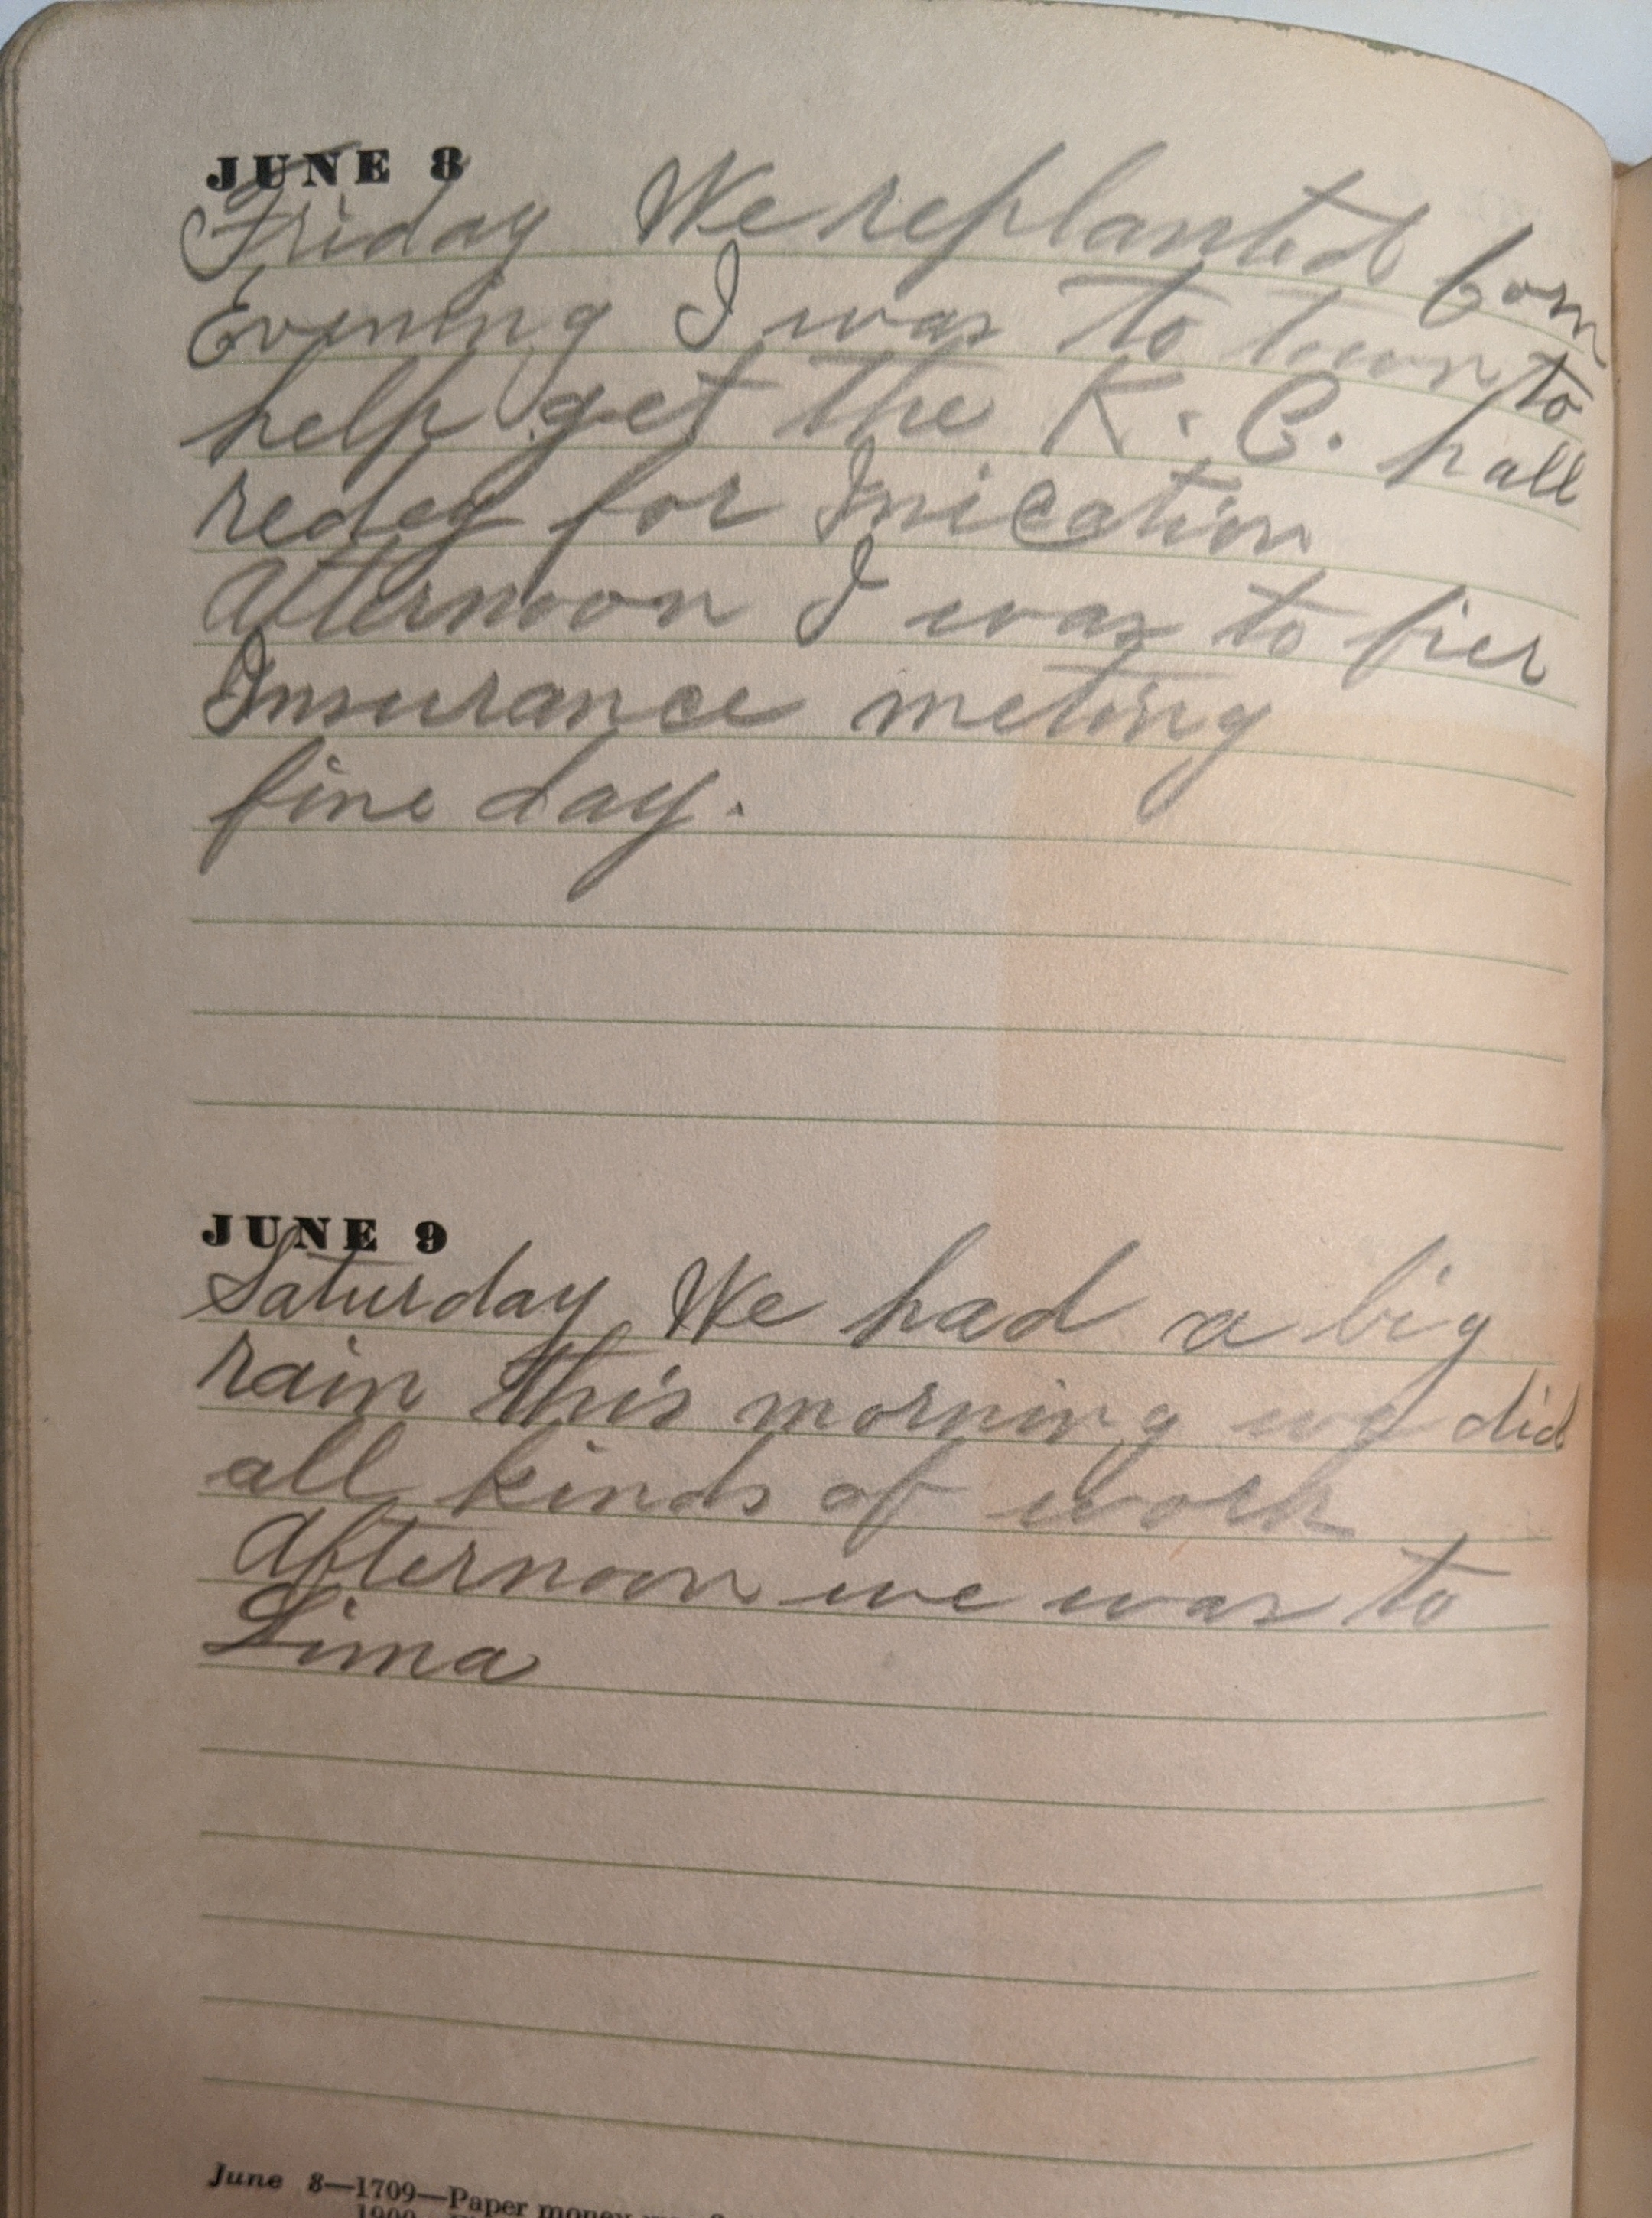 JUNE 8
Friday We replanted Corn
Evening I was to town to
help get the K. C. hall
redey for Inication
Afternoon I was to fier
Insurance meting
fine day.
JUNE 9
Saturday We had a big
rain this morning we did
all kinds of work
Afternoon we was to
Lima
June 8—1709—Paper money